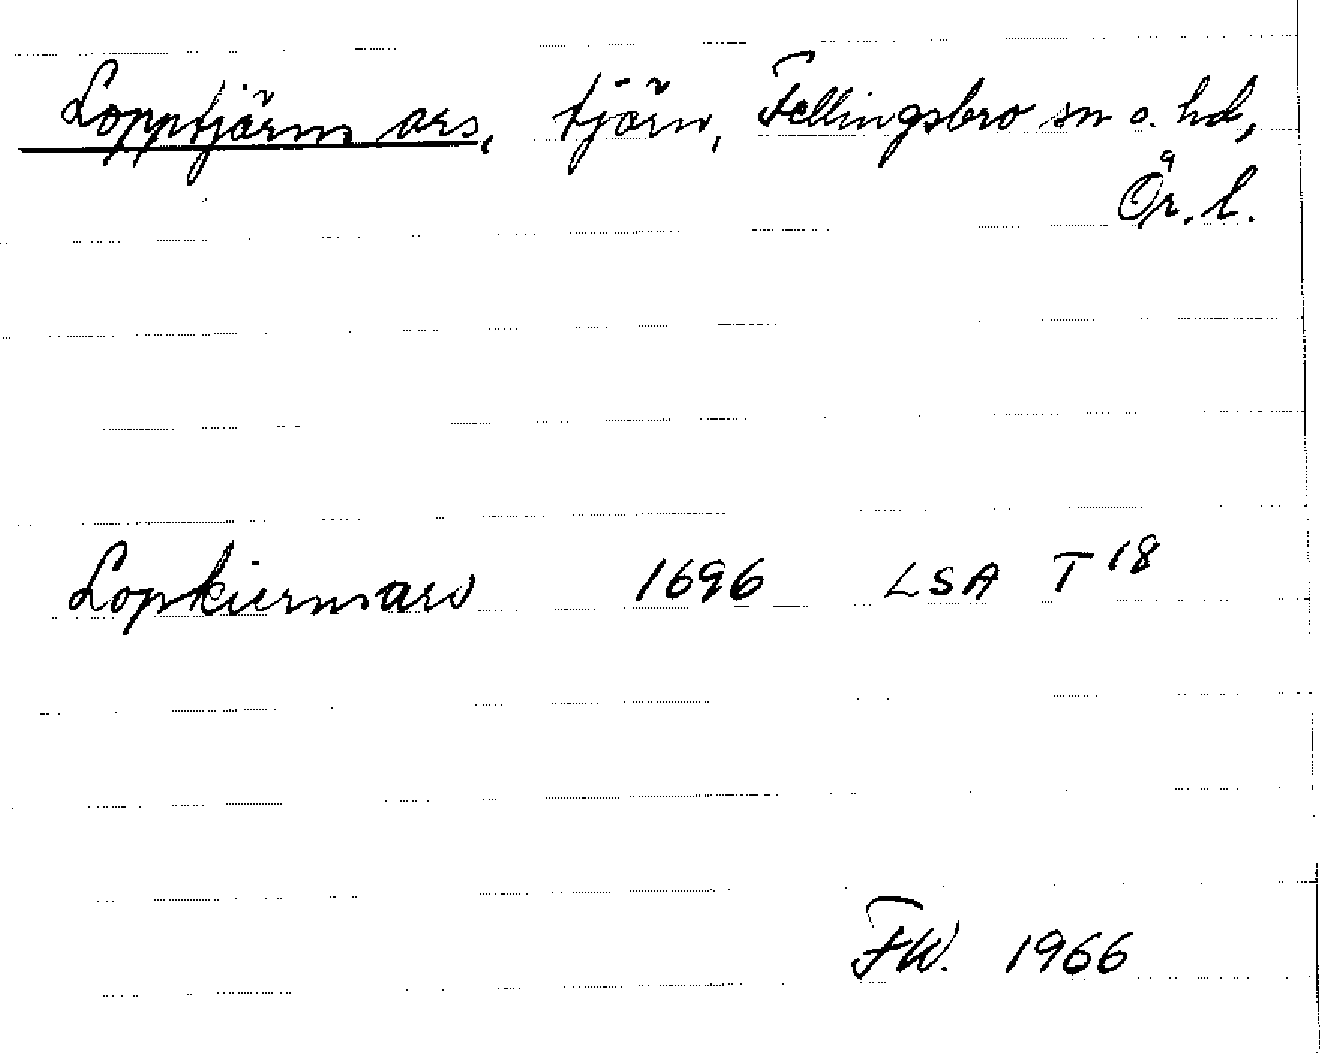 Lopptjärns ars, tjärn, Fellingsbro sn o. hd,
Ör. l.
Lopkiernsars 1696 LSA T 18
FW. 1966